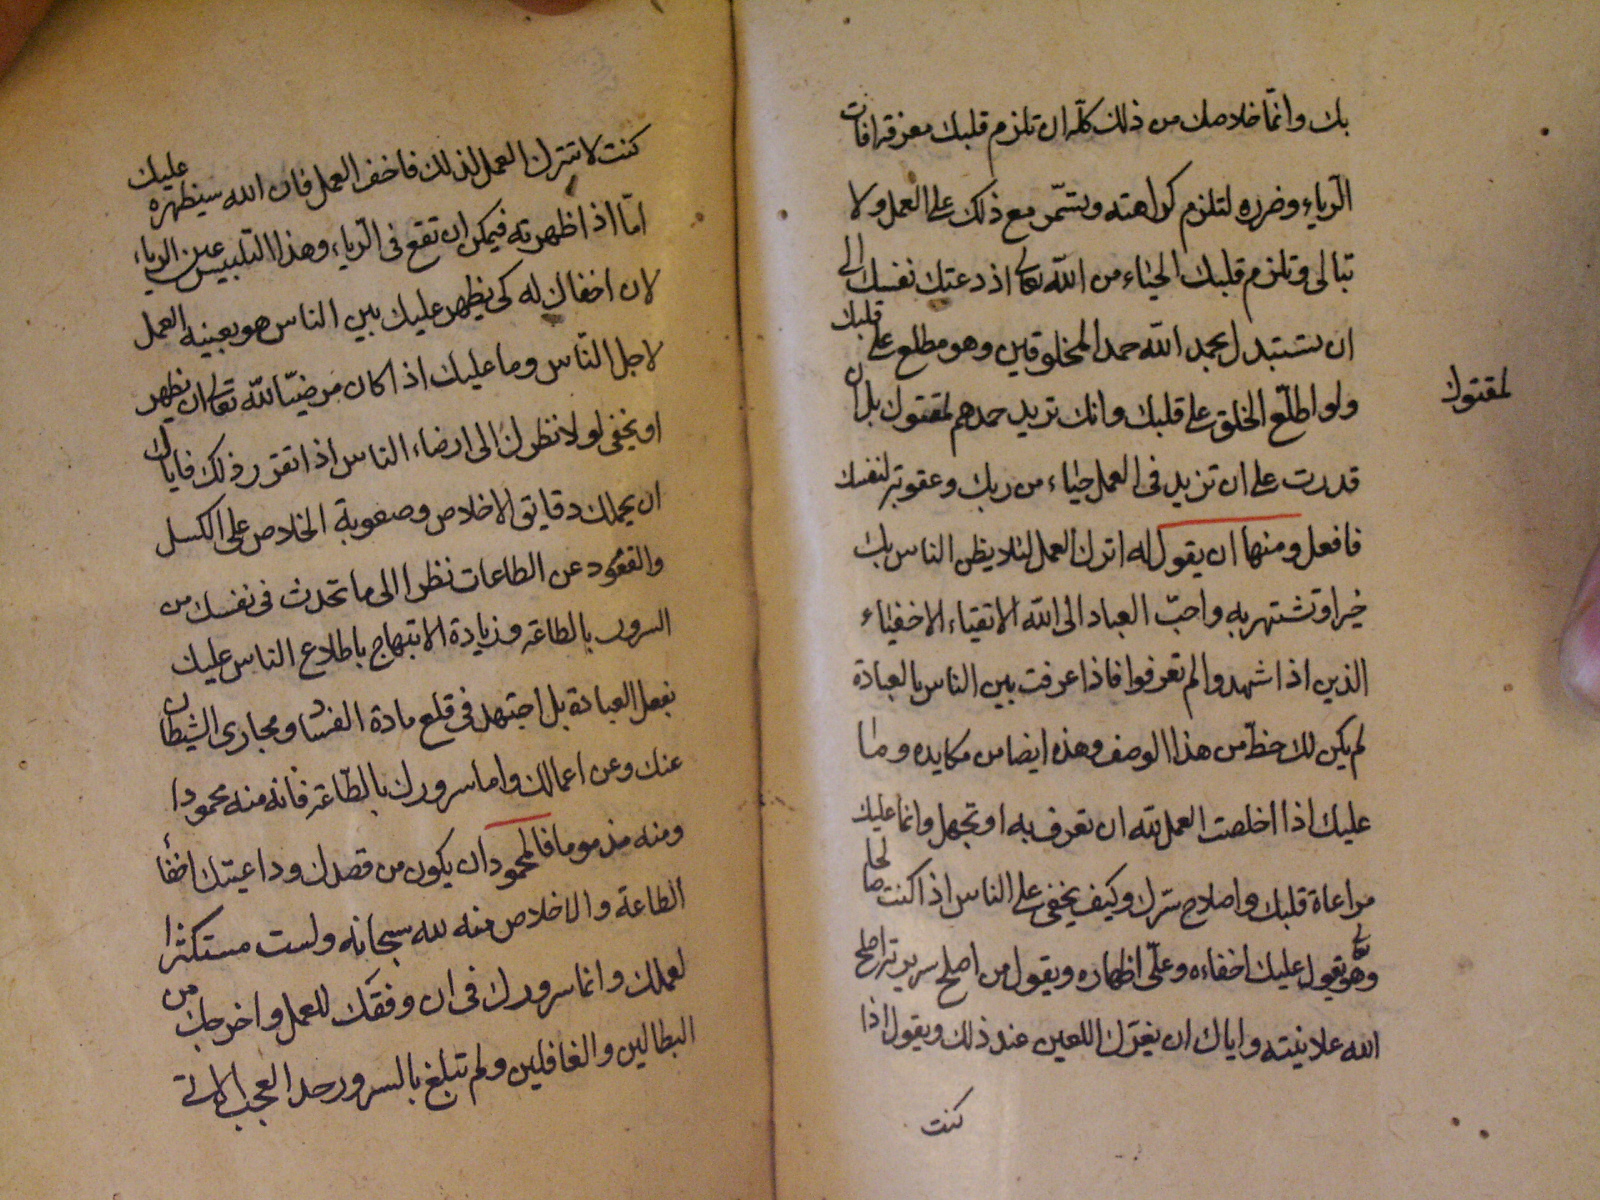 بك وانّما خلاصك من ذلك كلّه ان تلزم قلبك معرفة افات
الرّياء وضرره لتلزم كراهته وتشمّر مع ذلك على العمل ولا
تبالى وتلزم قلبك الحياء من اللّه تعالى اذ دعتك نفسك الى
ان تستبدل بحمد اللّه حمد المخلوقين وهو مطلع على قلبك
ولو اطلّع الخلق على قلبك وانك تريد حمدهم لمقتوك بل ان
لمقتوك
قدرت على ان تزيد فى العمل حياء من ربك وعقوبة لنفسك
فافعل ومنها ان يقول له اترك العمل لئلا يظن الناس بك
خيرا وتشتهر به واحبّ العباد الى اللّه الاتقياء الاخفياء
الذين اذا شهدوا لم تعرفوا فاذا عرفت بين الناس بالعبادة
لم يكن لك حظّ من هذا الوصف وهذه ايضا من مكايده وما
عليك اذا اخلصت العمل للّه ان تعرف به او تجهل وانما عليك
مراعاة قلبك واصلاح سرّك وكيف يخفى على الناس اذا كنت صالحا
وهو تعالى يقول عليك اخفاءه وعلّى اظهاره ويقول من اصلح سريرته اصلح
الله علانيته واياك ان يغرّك اللعين عند ذلك ويقول اذا
كنت
كنت لا تترك العمل لذلك فاخف العمل فان الله سيظهره عليك
امّا اذ اظهرته فيمكن ان تقع فى الرّياء وهذا التلبيس عين الرياء
لان اخفاك له كى يظهر عليك بين الناس هو بعينه العمل
لاجل النّاس وما عليك اذا كان مرضيّا للّه تعالى ان يظهر
او يخفى لولا نظرك الى ارضاء الناس اذا تقرر ذلك فاياك
ان يحملك دقايق الاخلاص وصعوبة الخلاص على الكسل
والقعود عن الطاعات نظرا الى ما تحدث فى نفسك من
السرور بالطاعة وزيادة الابتهاج باطلاع الناس عليك
بفعل العبادة بل اجتهد فى قلع مادة الفساد ومجارى الشيطان
عنك وعن اعمالك واما سرورك بالطّاعة فانه منه محمودا
ومنه مذموما فالمحمود ان يكون من قصدك وداعيتك اخفأ
الطاعة والاخلاص منه لله سبحانه ولست مستكثرا
لعملك وانما سرورك فى ان وفقك للعمل واخرجك من
البطالين والغافلين ولم تبلغ بالسرور حد العجب الاتى